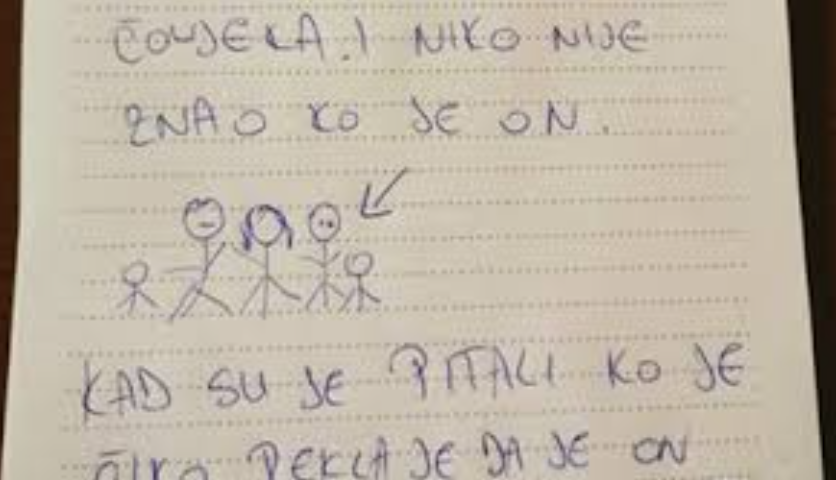 ČOVJEKA. I NIKO NIJE
ZNAO KO JE ON.
KAD SU JE PITALI KO JE
REKLA JE DA JE ON